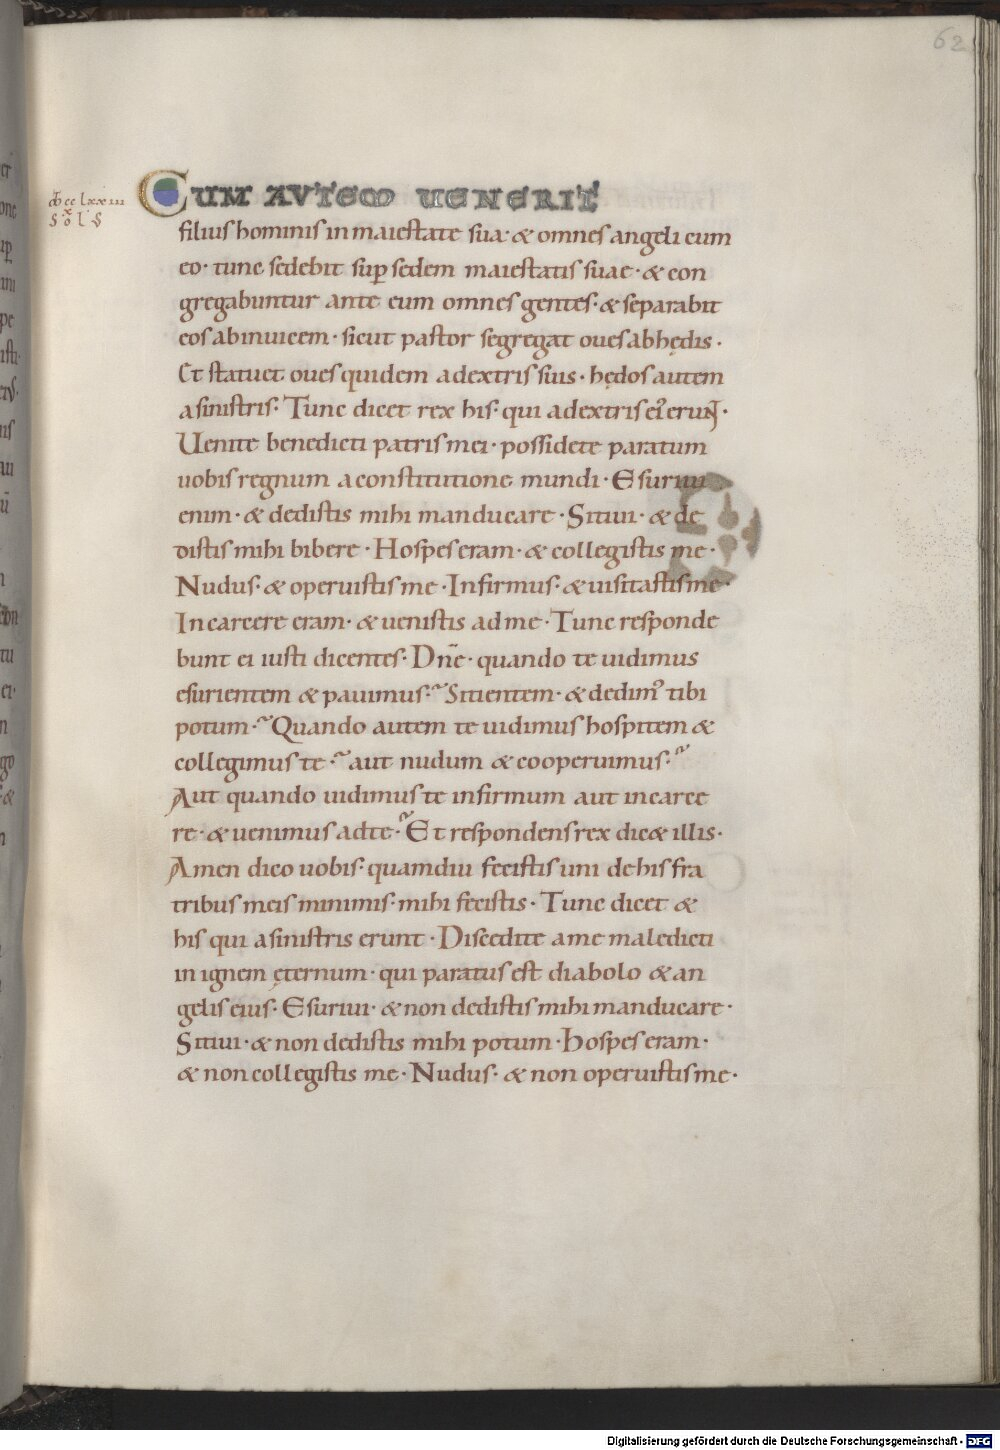 62
CUM AVTEM UENERIT
filius hominis in maiestate sua· & omnes angeli cum
eo· tunc sedebit sup̱ sedem maiestatis suae· & con
gregabuntur ante eum omnes gentes· & separabit
eos abinuicem· sicut pastor segregat oues abhędis·
Et statuet oues quidem adextris suis· hędos autem
asinistris· Tunc dicet rex his· qui adextris ei᾽ erunt·
Uenite benedicti patris mei· possidete paratum
uobis regnum aconstitutione mundi· Esuriui
enim· & dedistis mihi manducare· Sitiui· & de
distis mihi bibere· Hospes eram· & collegistis me·
Nudus· & operuistis me· Infirmus· & uisitastis me·
Incarcere eram· & uenistis ad me· Tunc responde
bunt ei iusti dicentes· Dn̄e· quando te uidimus
esurientem & pauimus·~ Sitientem· & dedim᾽ tibi
potum·~ Quando autem te uidimus hospitem &
collegimus te·~ aut nudum & cooperuimus·~
Aut quando uidimus te infirmum aut incarce
re· & uenimus adte·~ Et respondens rex dic& illis·
Amen dico uobis· quamdiu fecistis uni de his fra
tribus meis minimis· mihi fecistis· Tunc dicet &
his qui asinistris erunt· Discedite ame maledicti
in ignem ęternum· qui paratus est diabolo & an
gelis eius· Esuriui· & non dedistis mihi manducare·
Sitiui· & non dedistis mihi potum· Hospes eram·
& non collegistis me· Nudus· & non operuistis me·
Digitalisierung gefördert durch die Deutsche Forschungsgemeinschaft - DFG